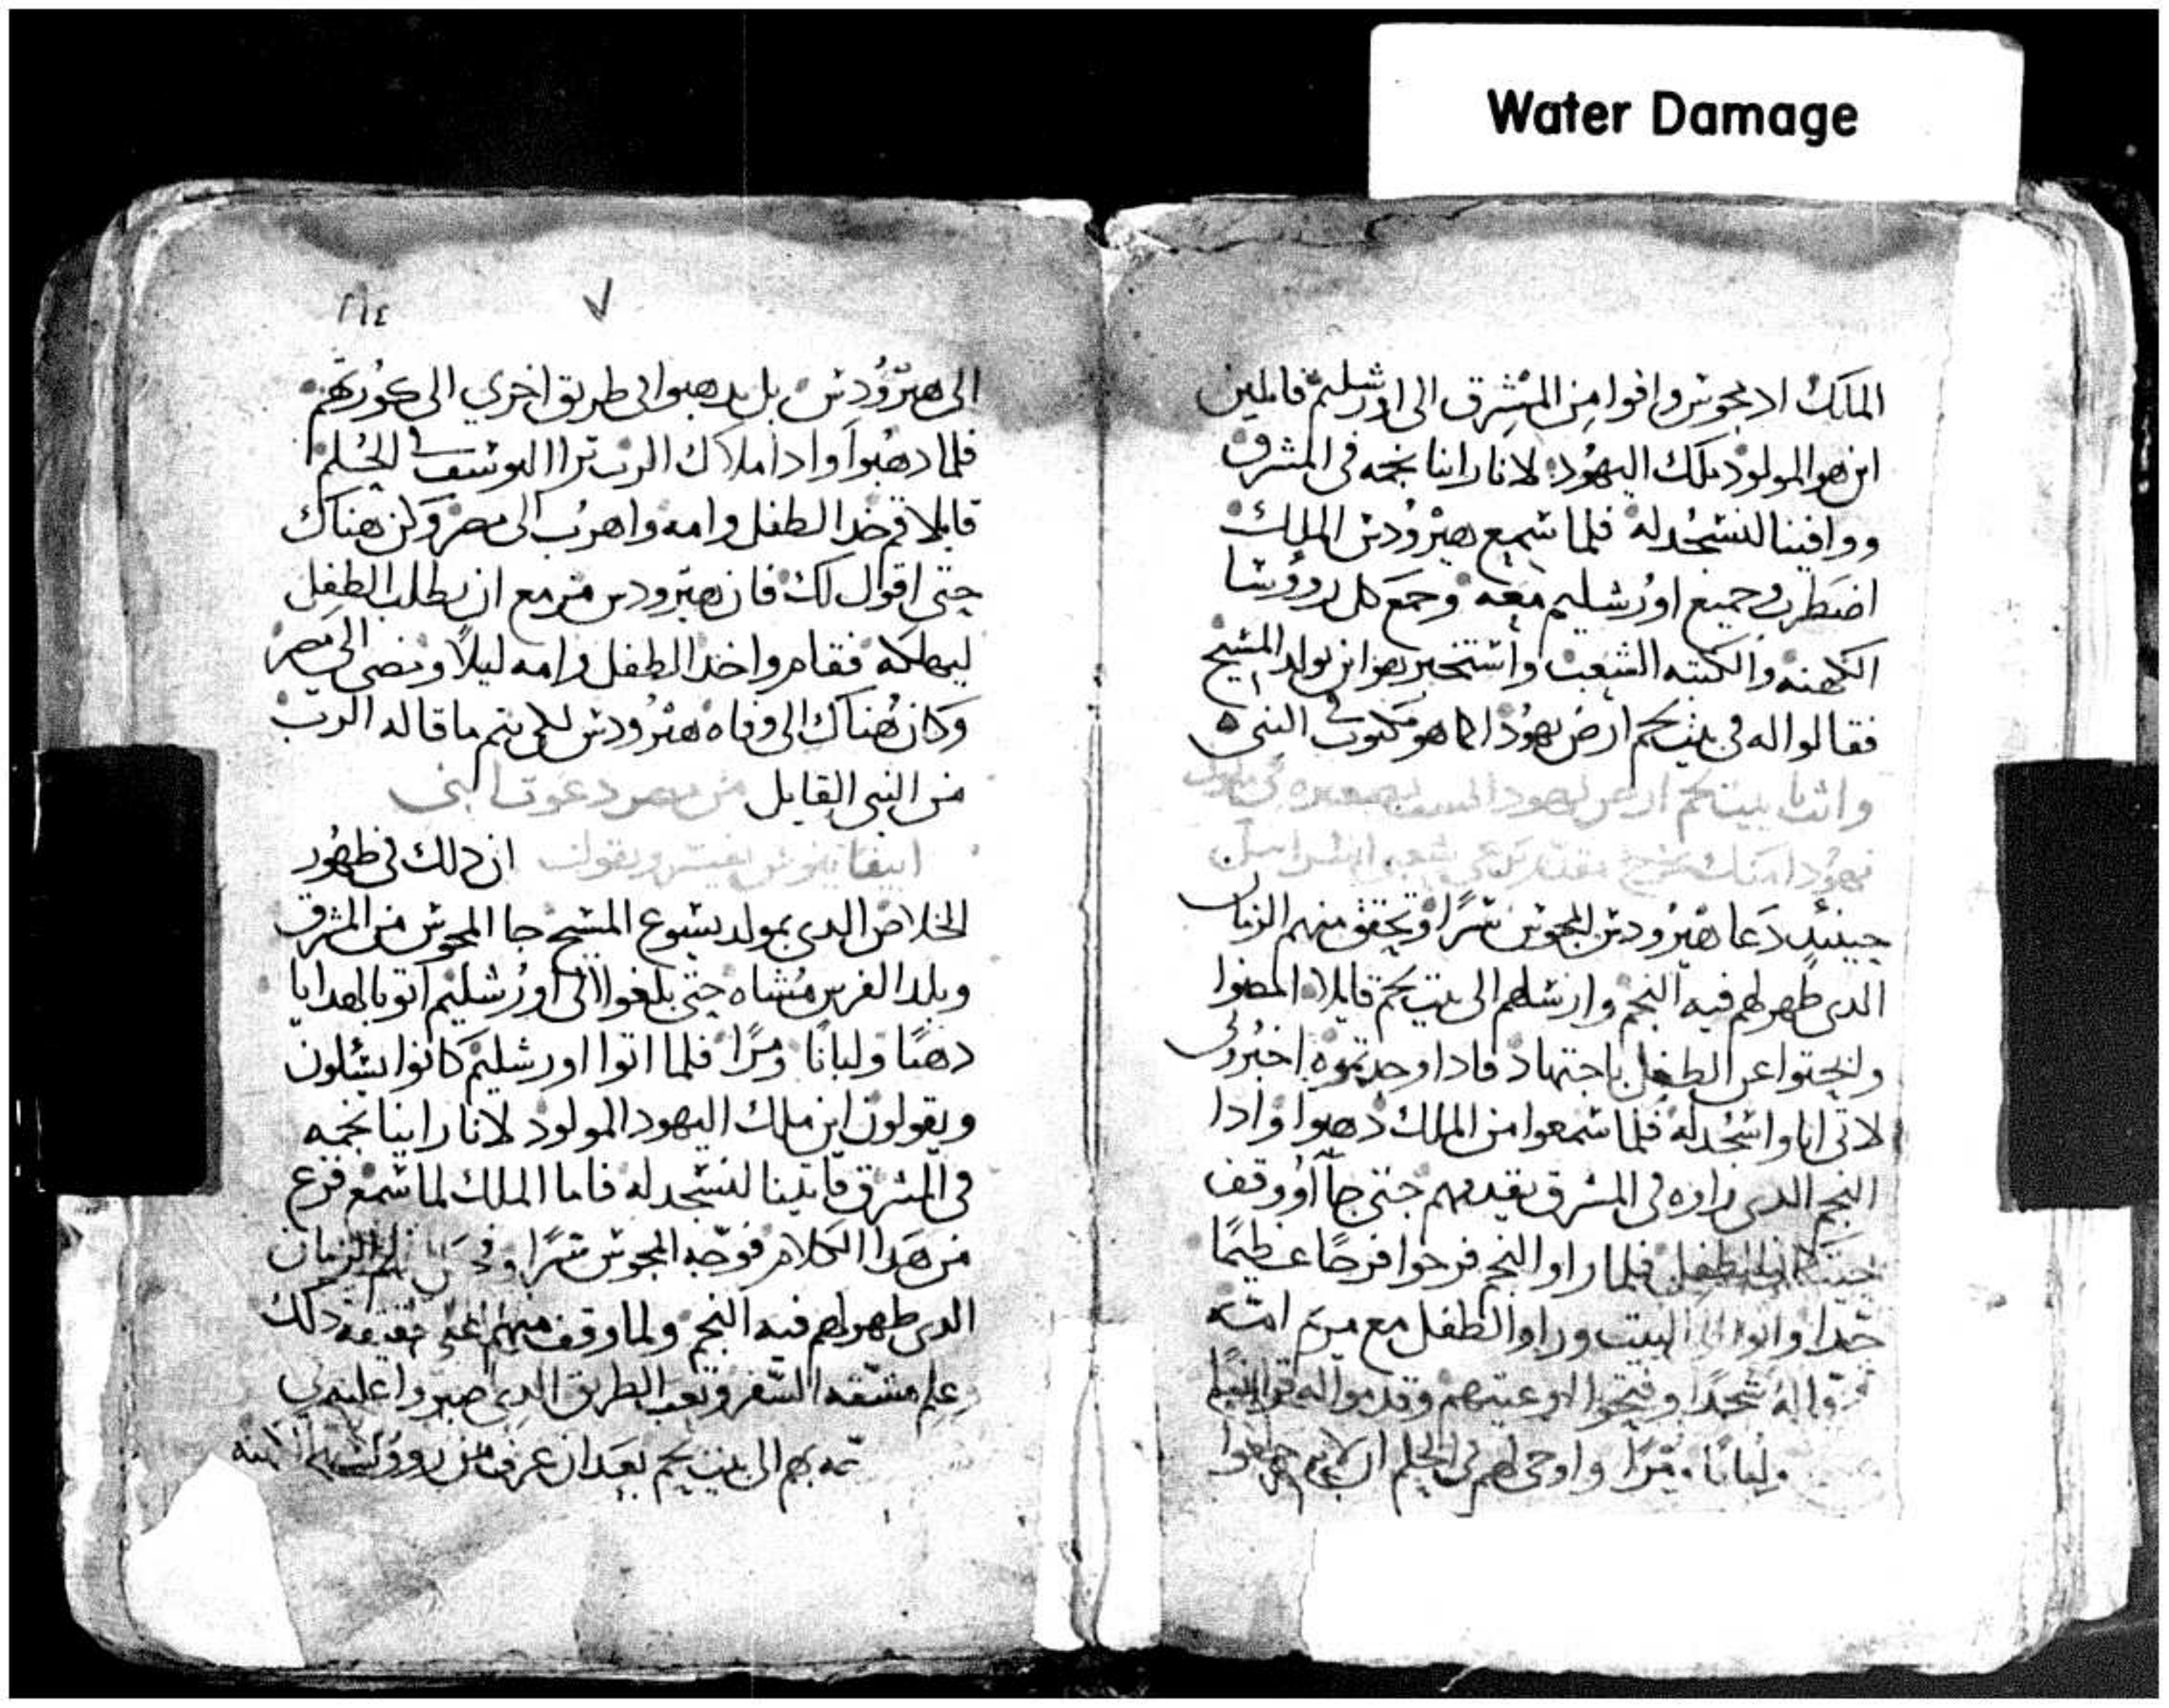 Water Damage
الملك اد مجوس وافوا من المشرق الى اورشليم قايلين
اين هو المولود ملك اليهود لانا راينا نجمه فى المشرق
ووافينا لنسجد له فلما سمع هيرودس الملك
اضطرب وجميع اورشليم معه وجمع كل رووسا
الكهنه والكتبه الشعب واستخبرهم اين يولد المسيح
فقالوا له فى بيت لحم ارض يهودا كما هو مكتوب فى النبى
وانت يا بيت لحم ارض يهودا
يهودا منك يخرج مقدم يرعى شعبى اسراييل
حينيد دعا هيرودس المجوس سرا وتحقق منهم الزمان
الدى ظهر لهم فيه النجم وارسلهم الى بيت لحم قايلا امضوا
وابحتوا عن الطفل باجتهاد فادا وجدتموه اخبرونى
لاتى انا واسجد له فلما سمعوا من الملك دهبوا وادا
النجم الدى راوه فى المشرق يقدمهم حتى جا ووقف
حيت كان الطفل فلما راوا النجم فرحوا فرحا عظيما
جدا واتوا الى البيت وراوا الطفل مع مريم امه
له سجدا وفتحوا اوعيتهم وقدموا له قرابينا
ولبانا ومرا واوحى لهم فى الحلم ان لا يرجعوا
٢١٤ ٧
الى هيرودس بل يدهبوا فى طريق اخرى الى كورتهم
فلما دهبوا وادا ملاك الرب تراا ليوسف فى الحلم
قايلا قم خد الطفل وامه واهرب الى مصر وكن هناك
حتى اقول لك فان هيرودس مزمع ان يطلب الطفل
ليهلكه فقام واخد الطفل وامه ليلا ومضى الى مصر
وكان هناك الى وفاه هيرودس لكى يتم ما قاله الرب
من النبى القايل من مصر دعوت ابنى
ابيفانيوس يفسر ويقول ان دلك فى ظهور
الخلاص الدى بمولد يسوع المسيح جا المجوس من المشرق
وبلد الفرس مشاه حتى بلغوا الى اورشليم اتوا بالهدايا
دهبا ولبانا ومرا فلما اتوا اورشليم كانوا يسلون
ويقولون اين ملك اليهود المولود لانا راينا نجمه
فى المشرق فاتينا لنسجد له فاما الملك لما سمع فزع
من هدا الكلام فوجه المجوس سرا الزمان
الدى ظهر لهم فيه النجم ولما وقف منهم على حقيقه دلك
وعلم مشقه السفر وتعب الطريق الدى صبروا عليه
بهم الى بيت لحم بعد ان عرف من رووسا